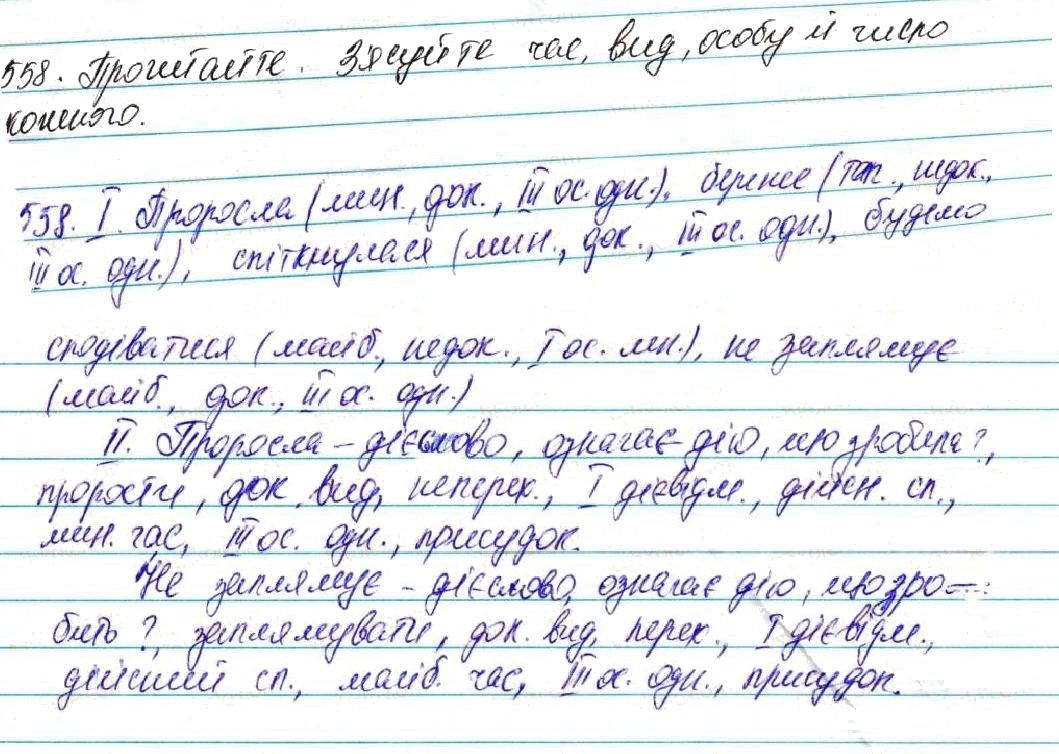 558. Прочитайте. З'ясуйте час, вид, особу й число
кожного.
558. I. Проросла (мин., док., III ос. одн.), береже (теп., недок.,
III ос. одн.), спіткнулася (мин., док., III ос. одн.), будемо
сподіватися (майб., недок., I ос. мн.), не заплямує
(майб., док., III ос. одн.)
II. Проросла – дієслово, означає дію, що зробила?,
прорости, док. вид, неперех., I дієвідм., дійсн. сп.,
мин. час, III ос. одн., присудок.
Не заплямує – дієслово, означає дію, що зро-
бить?, заплямувати, док. вид, перех., I дієвідм.,
дійсний сп., майб. час, III ос. одн., присудок.